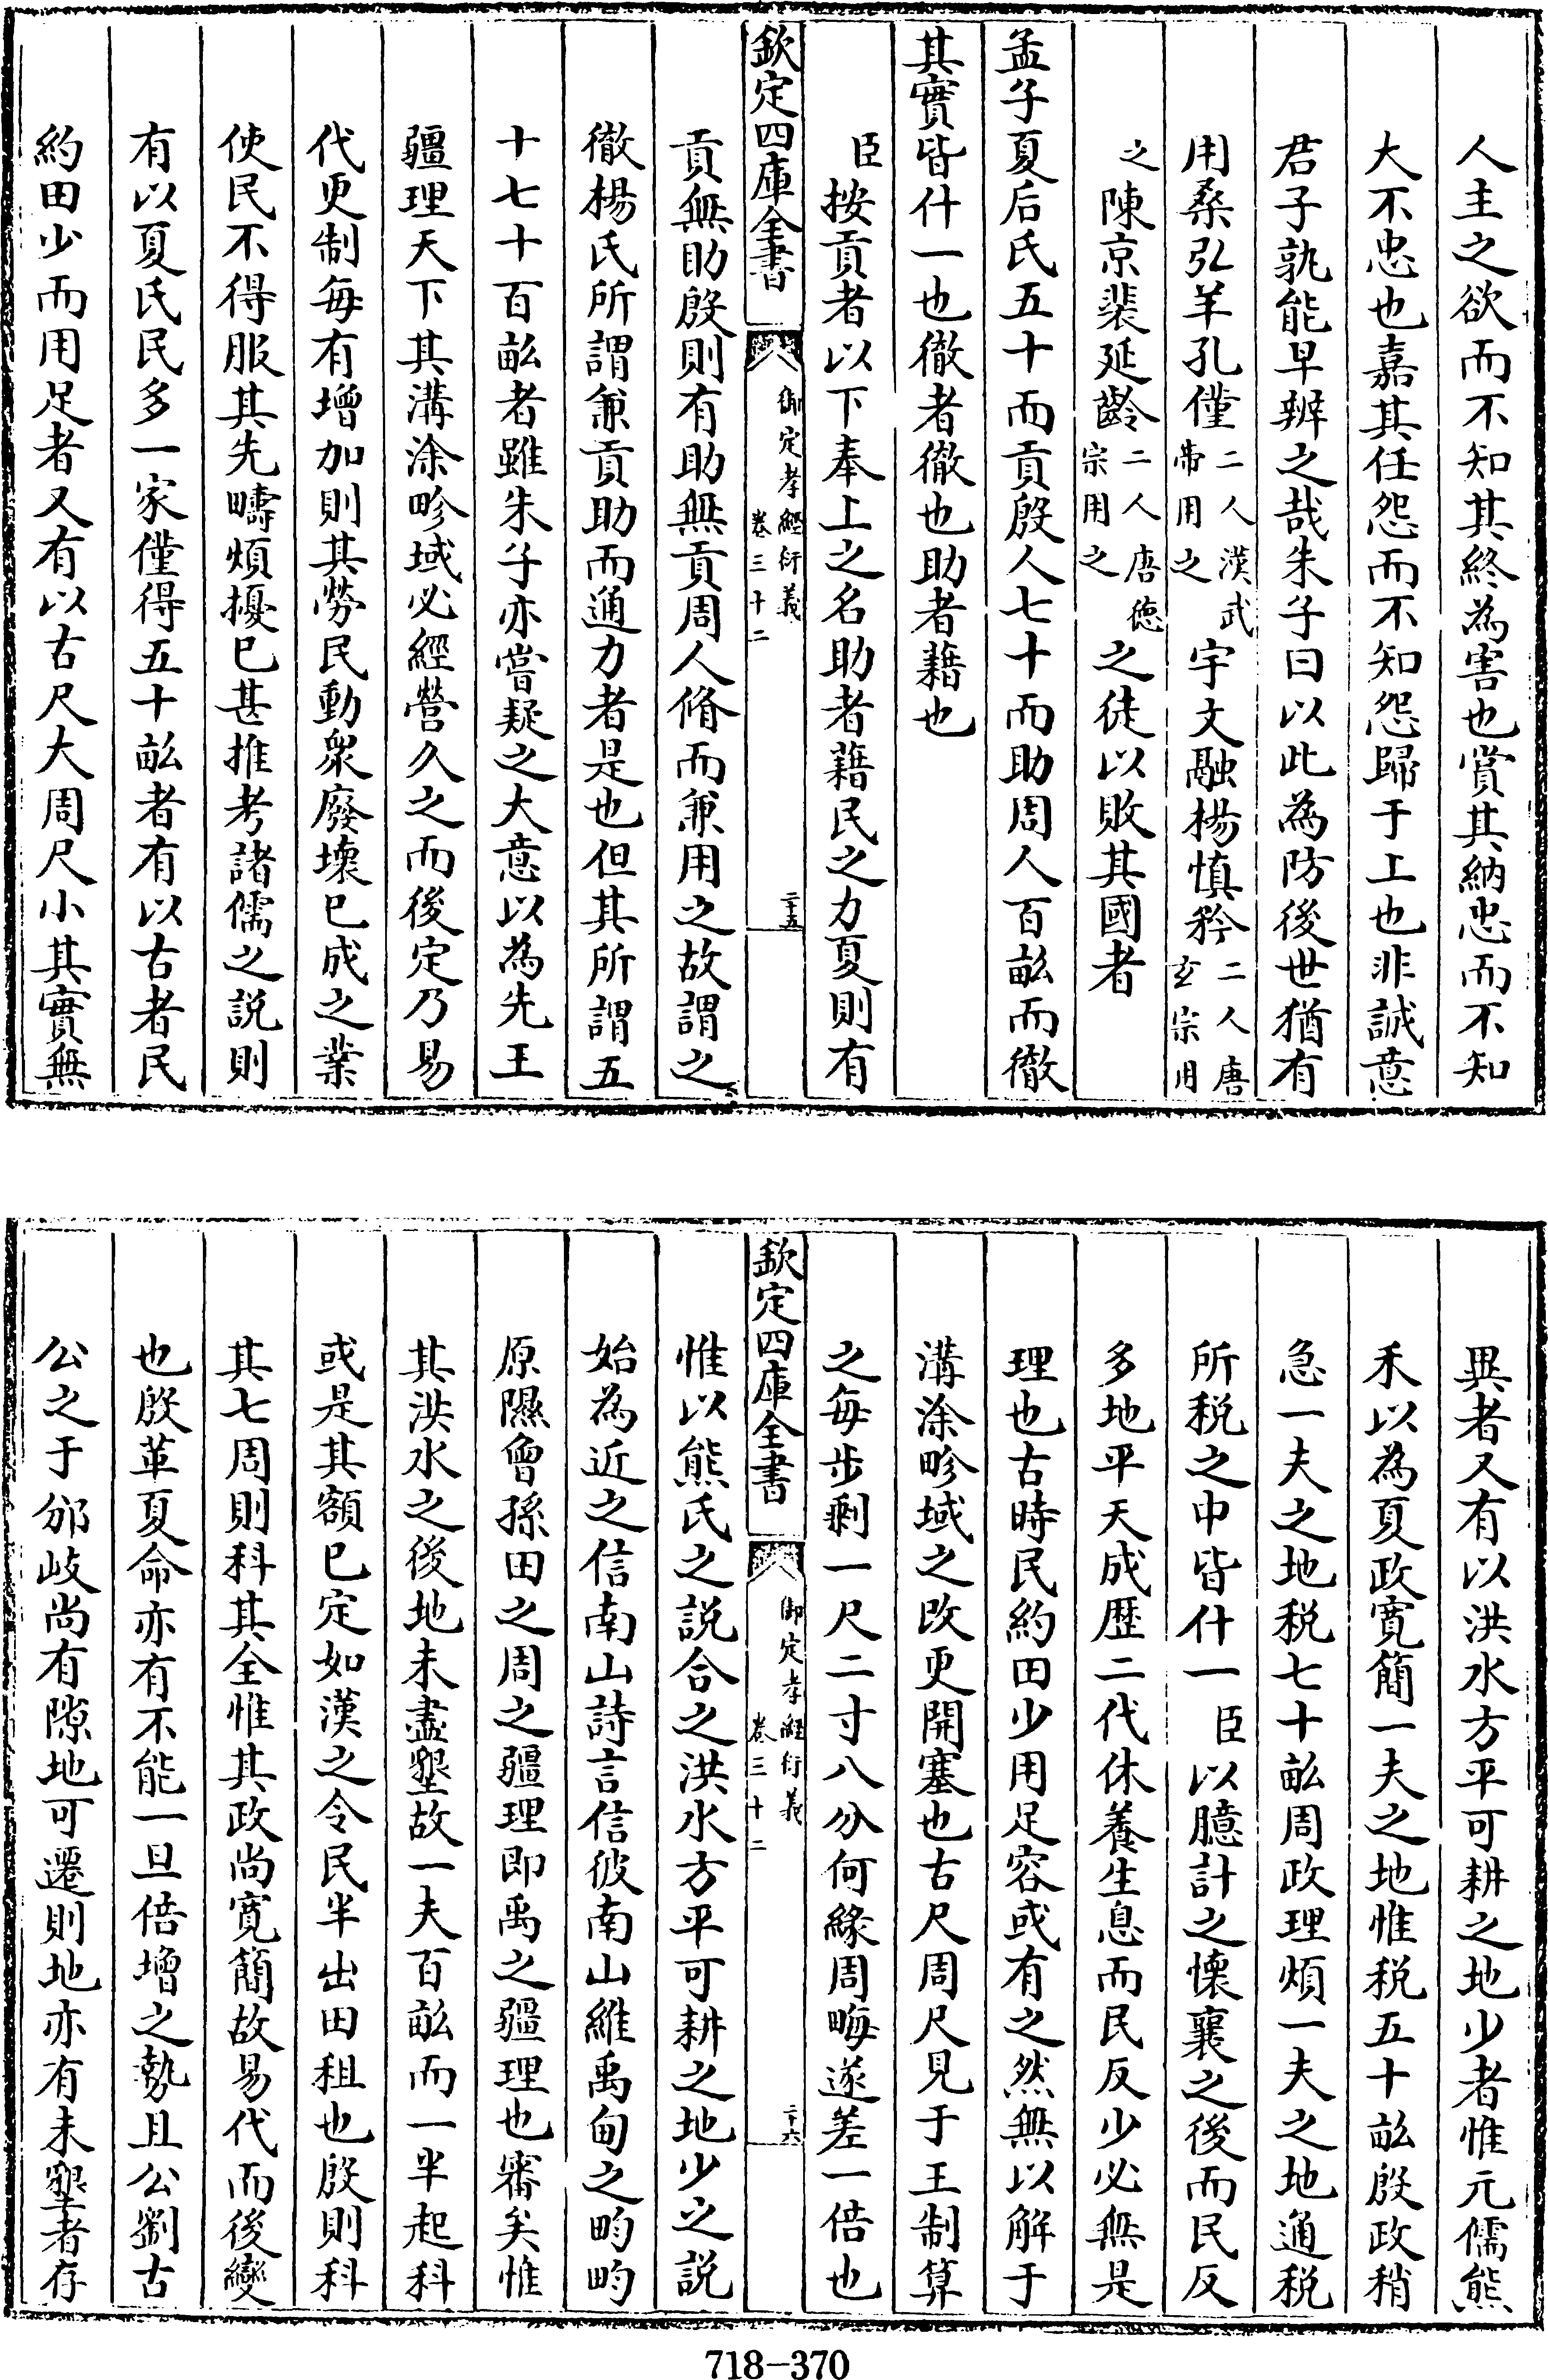 人主之欲而不知其終為害也賞其納忠而不知
大不忠也嘉其任怨而不知怨歸于上也非誠意
君子孰能早辨之哉朱子曰以此為防後世猶有
用桑弘羊孔僅二人漢武帝用之宇文融楊慎矜二人唐玄宗用
之陳京裴延齡二人唐徳宗用之之徒以敗其國者
孟子夏后氏五十而貢殷人七十而助周人百畝而徹
其實皆什一也徹者徹也助者藉也
臣按貢者以下奉上之名助者藉民之力夏則有
欽定四庫全書 御定孝經衍義 卷三十二 二十五
貢無助殷則有助無貢周人脩而兼用之故謂之
徹楊氏所謂兼貢助而通力者是也但其所謂五
十七十百畝者雖朱子亦嘗疑之大意以為先王
疆理天下其溝涂畛域必經營久之而後定乃易
代更制每有增加則其勞民動衆廢壞已成之業
使民不得服其先疇煩擾已甚推考諸儒之説則
有以夏氏民多一家僅得五十畝者有以古者民
約田少而用足者又有以古尺大周尺小其實無
異者又有以洪水方平可耕之地少者惟元儒熊
禾以為夏政寛簡一夫之地惟税五十畝殷政稍
急一夫之地税七十畝周政理煩一夫之地通税
所税之中皆什一臣以臆計之懐襄之後而民反
多地平天成歴二代休養生息而民反少必無是
理也古時民約田少用足容或有之然無以解于
溝涂畛域之改更開塞也古尺周尺見于王制算
之每步剩一尺二寸八分何緣周畮遂差一倍也
欽定四庫全書 御定孝經衍義 卷三十二 二十六
惟以熊氏之説合之洪水方平可耕之地少之説
始為近之信南山詩言信彼南山維禹甸之畇畇
原隰曾孫田之周之疆理即禹之疆理也審矣惟
其洪水之後地未盡墾故一夫百畝而一半起科
或是其額已定如漢之令民半出田租也殷則科
其七周則科其全惟其政尚寛簡故易代而後變
也殷革夏命亦有不能一旦倍增之勢且公劉古
公之于邠岐尚有隙地可遷則地亦有未墾者存
718-370